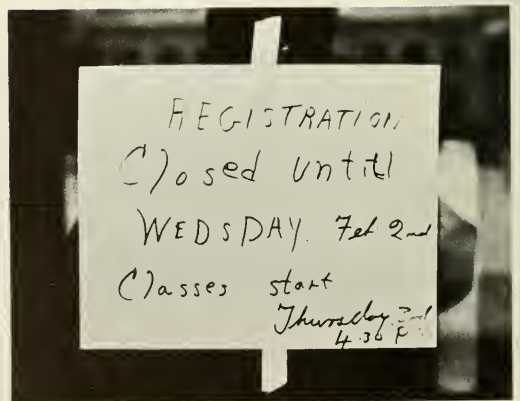 REGISTRATION
Closed until
WEDSDAY. Feb 2nd
Classes start
Thursday 3rd
4.30 P